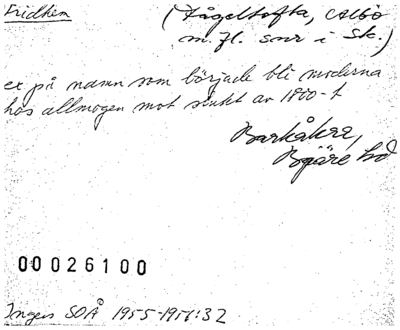 Fridhem
(Fågeltofta, Albo
m.fl. snr i Sk.)
ex på namn som började bli moderna
hos allmogen mot slutet av 1800-t
Barkåkra,
Bjäre hd
00026100
Ingers SOÅ 1955-1956:32